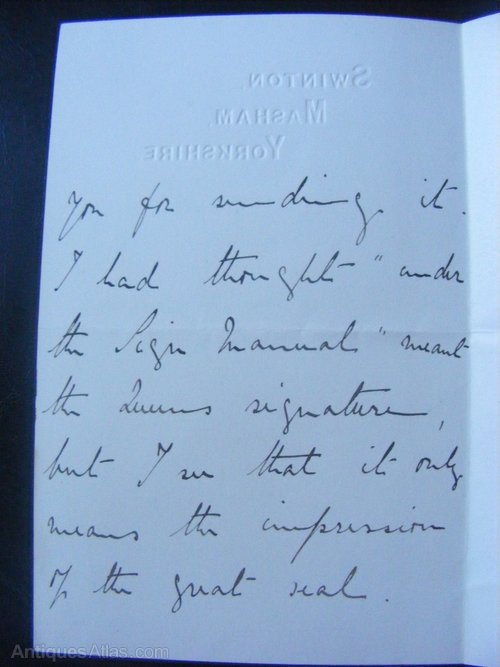 SWINTON,
MASHAM,
YORKSHIRE
you for sending it.
I had thought "under
the Sign Manual" meant
the Queens signature,
but I see that it only
means the impression
of the great seal.
AntiquesAtlas.com